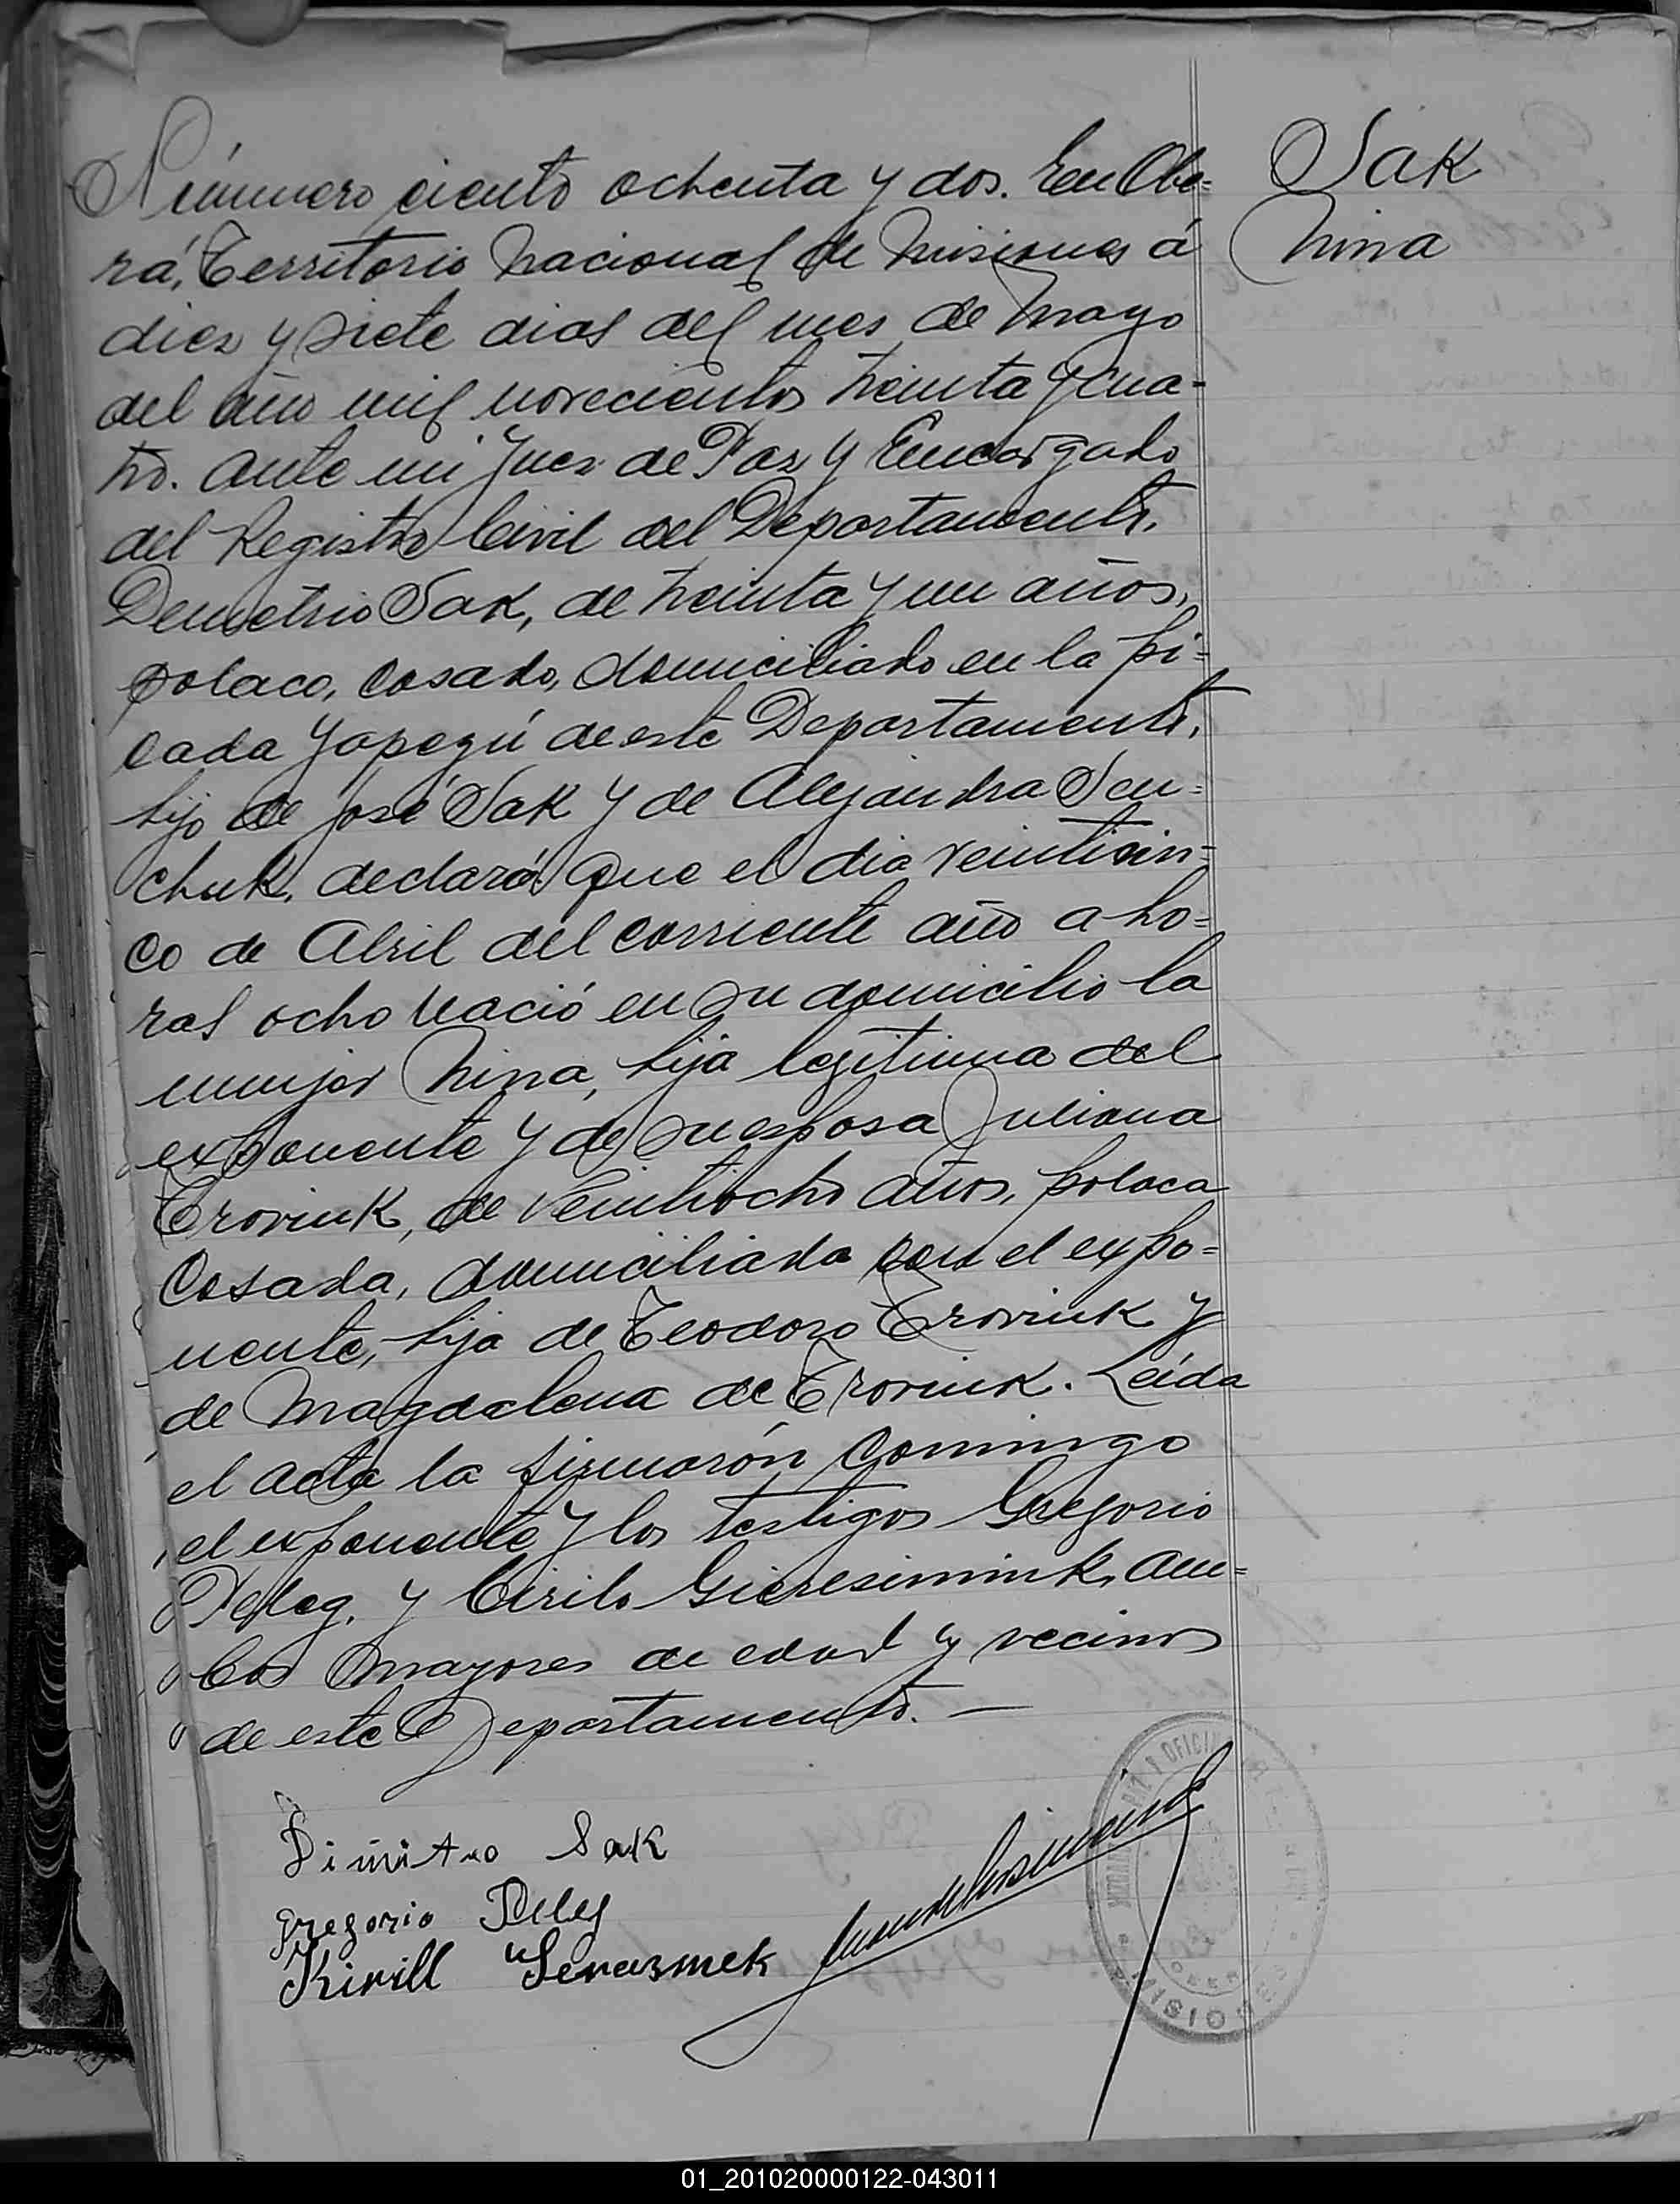 Número ciento ochenta y dos. En Obe=
rá, Territorio Nacional de Misiones á
diez y siete dias del mes de Mayo
del año mil novecientos treinta y cua-
tro. Ante mi Juez de Paz y Encargado
del Registro Civil del Departamento,
Demetrio Sak, de treinta y un años,
polaco, casado, domiciliado en la pi=
cada Yapeyú de este Departamento,
hijo de José Sak y de Alejandra Sen=
chuk, declaró: que el dia veinticin=
co de Abril del corriente año a ho=
ras ocho nació en su domicilio la
mujer Nina, hija legitima del
exponente y de su esposa Juliana
Troviuk, de veintiocho años, polaca
casada, domiciliada con el expo=
nente, hija de Teodoro Troviuk y
de Magdalena de Troviuk. Leída
el acta la firmarón conmigo
el exponente y los testigos Gregorio
Peleg, y Cirilo Gieresiminik, am=
bos mayores de edad y vecinos
de este Departamento. —
Sak
Nina
Dimitro Sak
Gregorio Peleg
Kirill
MISIONES
01_201020000122-043011